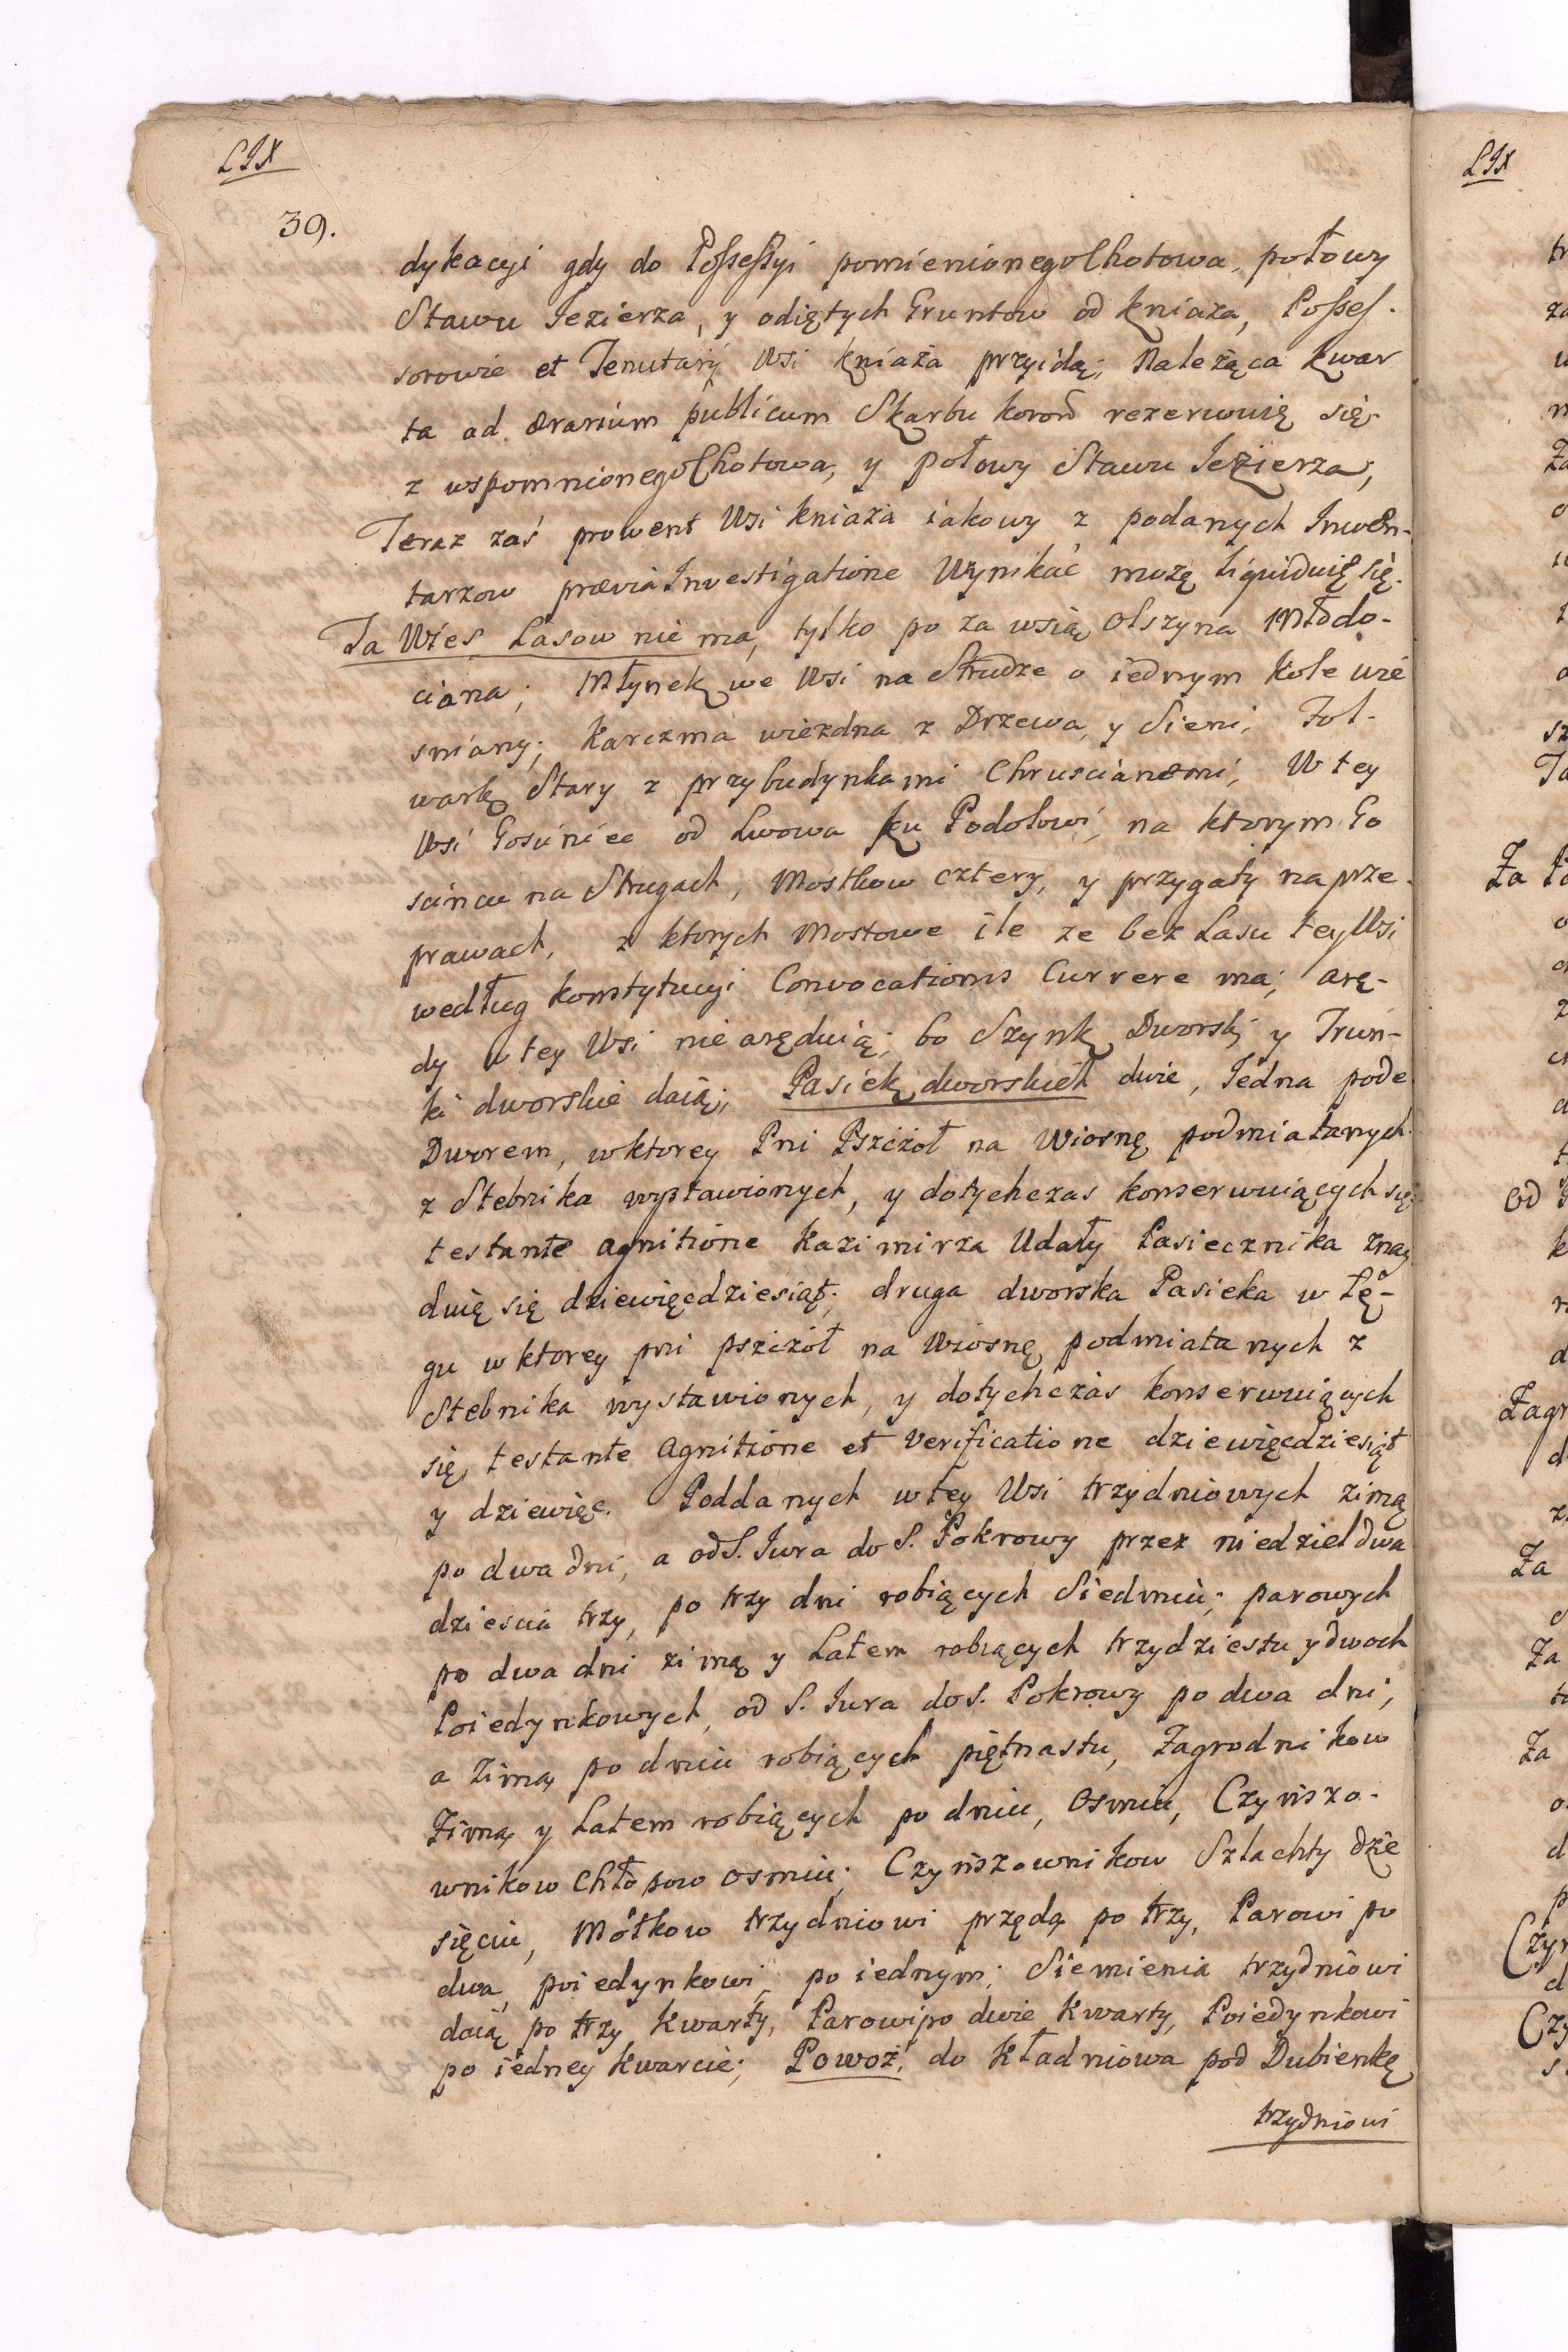 LIX
39.
dykacyi gdy do Possessyi pomienionego Chotowa, połowy
Stawu Iezierza, y odiętych Gruntow od kniaża, Posses-
sorowie et Tenutarÿ Wsi kniaża przyidą; Należąca kwar
ta ad ærarium publicum Skarbu koron rezerwuię się
z wspomnionego Chotowa, y połowy Stawu Iezierza,
Teraz zaś prowent Wsi kniaża iakowy z podanych Inwen-
tarzow prævia Investigatione Wynikać możę liquiduię się.
Ta Wies Lasow nie ma, tylko po za wsią olszyna Młodo-
ciana; Młynek we Wsi na Strudze o iednym kole wie
sniany; karczma wiezdna z Drzewa, y Sieni, Fol-
wark Stary z przybudynkami Chruscianemi, W tey
Wsi Gosciniec od Lwowa ku Podolowi, na ktorym Go
scincu na Strugach, Mostkow cztery, y przygaty na prze-
prawach, z ktorych Mostowe ile ze bez Lasu tey Wsi
według konstytucyi Convocationis Currere ma; arę-
dy w tey Wsi nie aręduią; bo Szynk Dworski y Trun-
ki dworskie daią; Pasiek dworskich dwie, Iedna pode
Dworem, w ktorey Pni Pszczoł na Wiosnę podmiatanych
z Stebnika wystawionych, y dotychczas konserwuiących się
testante agnitione kazimirza Udały Pasiecznika znay
duię się dziewięcdziesiąt; druga dworska Pasieka w Łę-
gu w ktorey pni pszczoł na Wiosnę podmiatanych z
Stebnika wystawionych, y dotychczas konserwuiących
się, testante agnitione et verificatione dziewięcdziesiąt
y dziewięc. Poddanych w tey Wsi trzydniowych zimą
po dwa dni, a od S. Iura do S. Pokrowy przez niedziel dwa
dziescia trzy, po trzy dni robiących Siedmiu; parowych
po dwa dni zimą y Latem robiących trzydziestu y dwoch
Poiedynkowych, od S. Iura do S. Pokrowy po dwa dni,
a Zimą po dniu robiących piętnastu, Zagrodnikow
Zimą y Latem robiących po dniu, Osmiu, Czynszo-
wnikow Chłopow osmiu; Czynszownikow Szlachty dzie
sięciu, Motkow trzydniowi przędą po trzy, Parowi po
dwa, poiedynkowi, po iednym; Siemienia trzydniowi
daią po trzy kwarty, Parowi po dwie kwarty, Poiedynkowi
po iedney kwarcie; Powoz, do kładniowa pod Dubienkę
trzydniowi